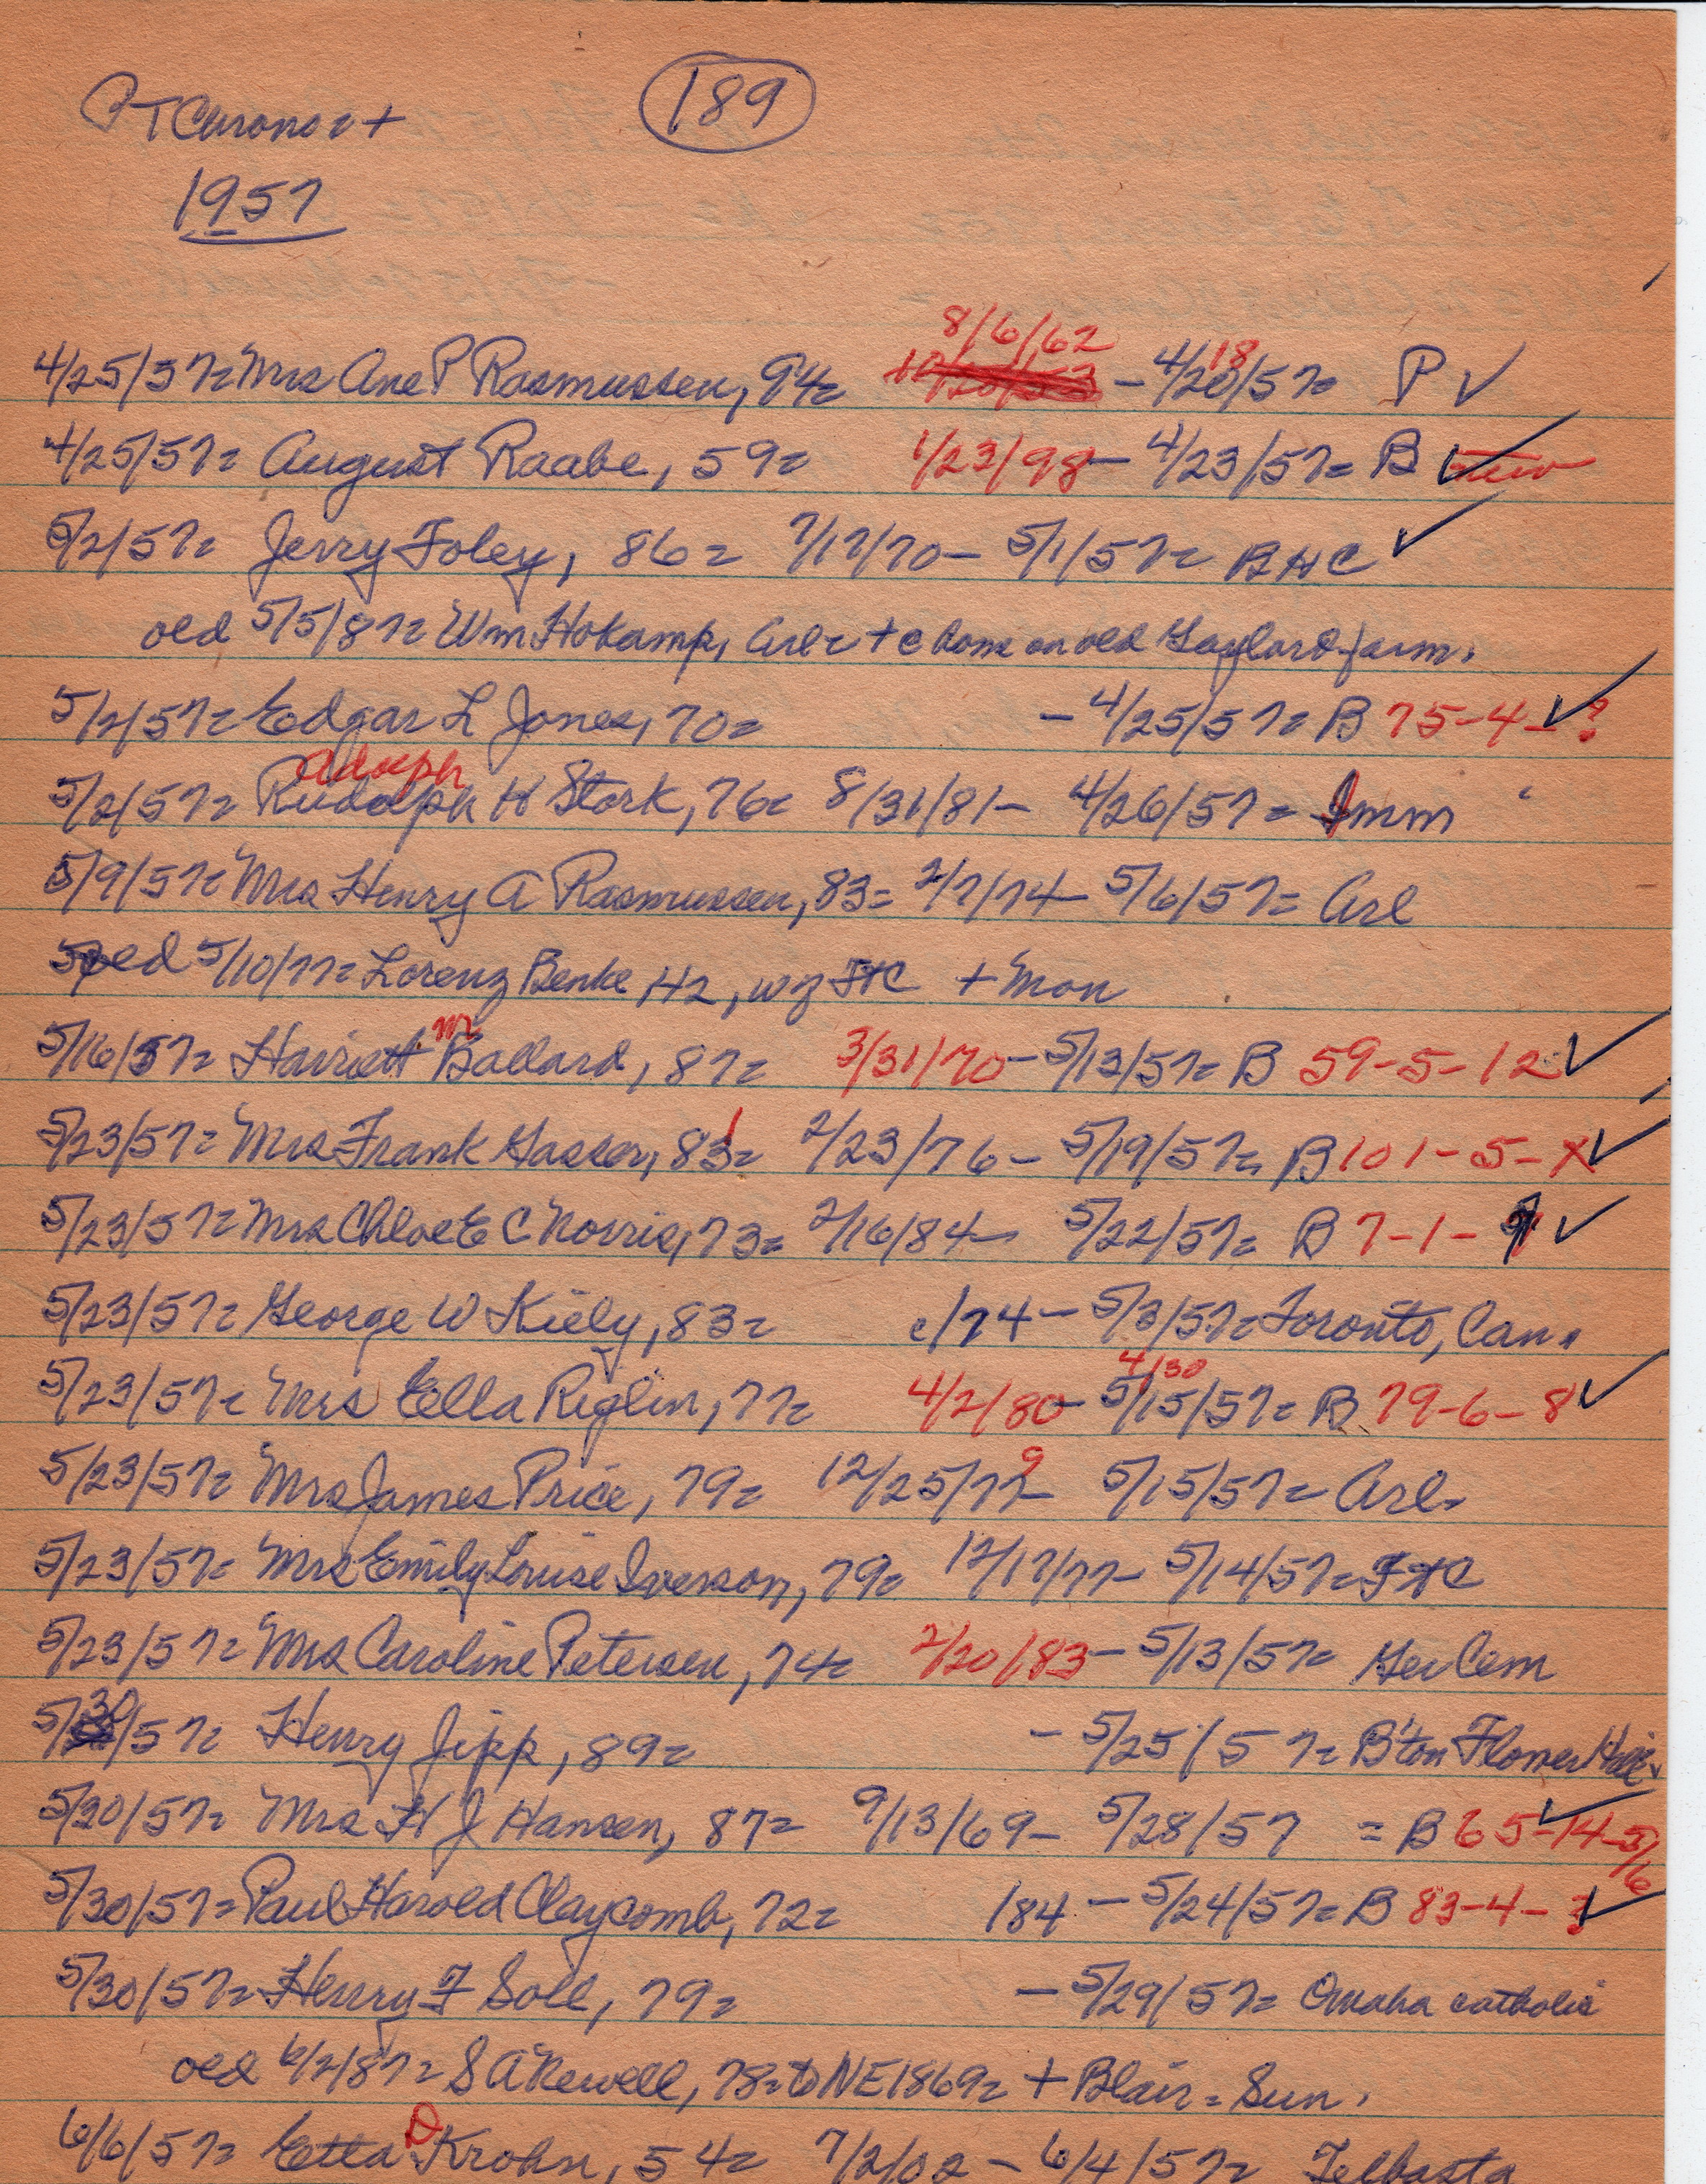 PT Chrono = +
189
1957
4/25/57= Mrs Ane P Rasmussen, 94= 8/6/62 - 4/20/57= 18 P ✓
4/25/57= August Raabe, 59= 1/23/98 - 4/23/57= B ✓
5/2/57= Jerry Foley, 86= 7/17/70 - 5/1/57= BHC ✓
old 5/5/87= Wm Hokamp, Arl= + @ home on old Gaylard farm.
5/2/57= Edgar L Jones, 70= - 4/25/57= B 75-4- ✓ ?
5/2/57= Rudolph Adolph H Stork, 76= 8/31/81 - 4/26/57= Imm
5/9/57= Mrs Henry A Rasmussen, 83= 2/7/74 - 5/6/57= Arl
old 5/10/77= Lorenz Benke 42, w of FtC + Mon
5/16/57= Harriett M Ballard, 87= 3/31/70 - 5/13/57= B 59-5-12 ✓
5/23/57= Mrs Frank Gasser, 83= 1 2/23/76 - 5/19/57= B 101-5-X ✓
5/23/57= Mrs Chloe E C Norris, 73= 2/16/84 - 5/22/57= B 7-1- ✓
5/23/57= George W Kiely, 83= c/74 - 5/3/57= Toronto, Can.
5/23/57= Mrs Ella Riglin, 77= 4/2/80 - 5/15/57= 4/30 B 79-6-8 ✓
5/23/57= Mrs James Price, 79= 12/25/77 9 - 5/15/57= Arl.
5/23/57= Mrs Emily Louise Iverson, 79= 12/17/77 - 5/14/57= FtC
5/23/57= Mrs Caroline Petersen, 74= 2/20/83 - 5/13/57= Ger Cem
5/30/57= Henry Jipp, 89= - 5/25/57= B'ton Flower Hill
5/30/57= Mrs H J Hansen, 87= 9/13/69 - 5/28/57 = B 65-14-5/6 ✓
5/30/57= Paul Harold Claycomb, 72= /84 - 5/24/57= B 83-4- ✓
5/30/57= Henry F Soll, 79= - 5/29/57= Omaha catholic
old 6/2/87= S A Newell, 78= to NE 1869= + Blair = Sun.
6/6/57= Etta D Krohn, 54= 7/2/02 - 6/4/57= Telbasta